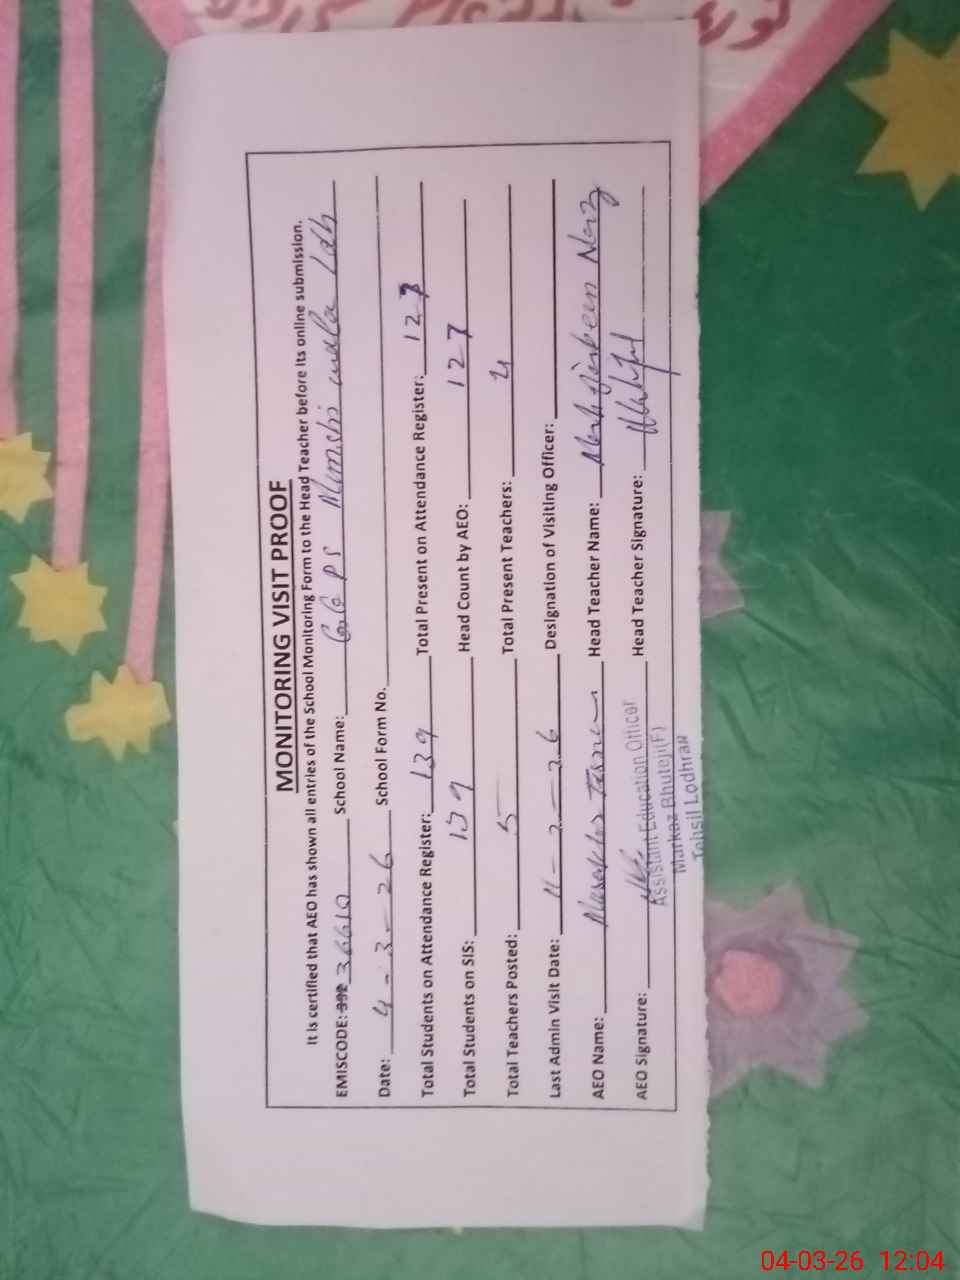 MONITORING VISIT PROOF
It is certified that AEO has shown all entries of the School Monitoring Form to the Head Teacher before its online submission.
EMISCODE: 36610 School Name: GGPS Munshi Ldh
Date: 4-3-26 School Form No.
Total Students on Attendance Register: 139 Total Present on Attendance Register: 127
Total Students on SIS: 139 Head Count by AEO: 127
Total Teachers Posted: 5 Total Present Teachers: 4
Last Admin Visit Date: 11-2-26 Designation of Visiting Officer:
AEO Name: Head Teacher Name:
AEO Signature: Head Teacher Signature:
Assistant Education Officer
Markaz Bhuteji(F)
Tehsil Lodhran
04-03-26 12:04